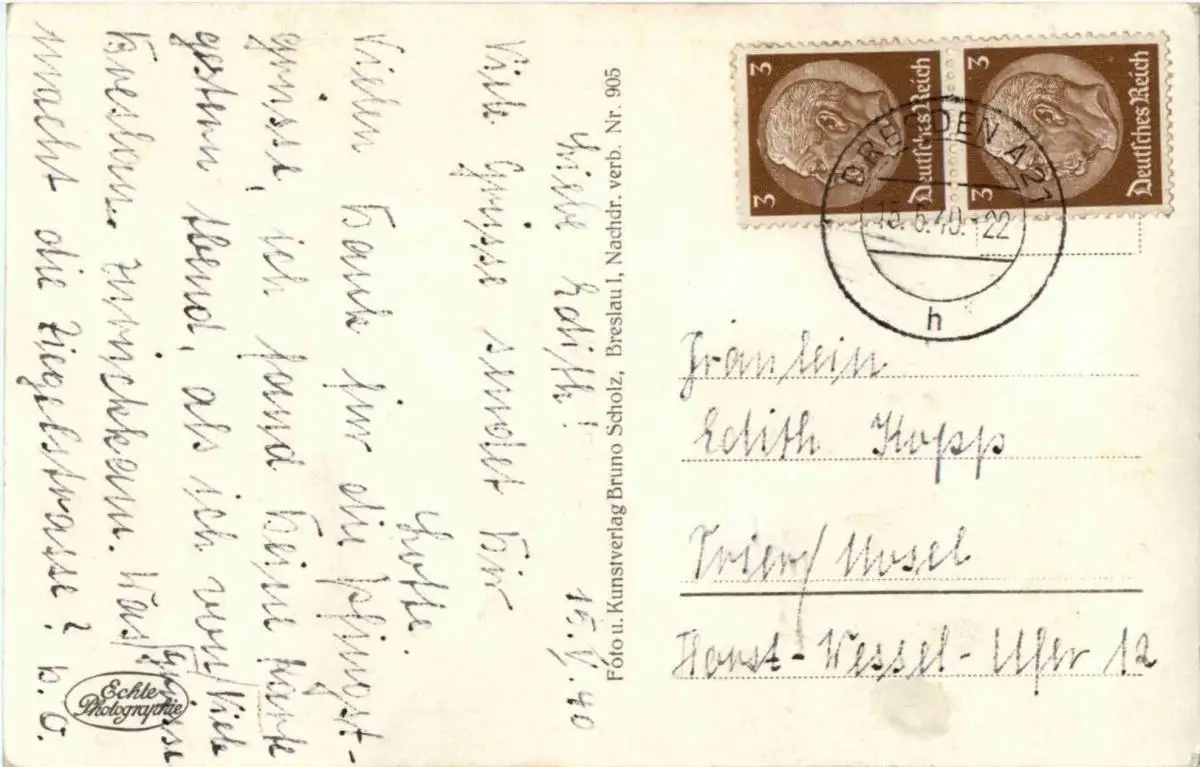 Liebe Edith! 15.V.40
Viele Grüsse sendet Dir
Lotte.
Vielen Dank für die Pfingst-
grüsse, ich fand Deine Karte
gestern Abend, als ich von /Viele
Breslau zurückkam. Was /Grüsse
macht die Ziegelstrasse?
Echte
Photographie
Foto u. Kunstverlag Bruno Scholz, Breslau I, Nachdr. verb. Nr. 905
3 3 Deutsches Reich
3 3 Deutsches Reich
DRESDEN A21
15.5.40.-22
h
Fräulein
Edith Kopp
Trier/Mosel
Horst-Wessel-Ufer 12